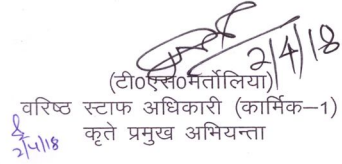 2/4/18
(टी0एस0मर्तोलिया)
वरिष्ठ स्टाफ अधिकारी (कार्मिक–1)
कृते प्रमुख अभियन्ता
2/4/18